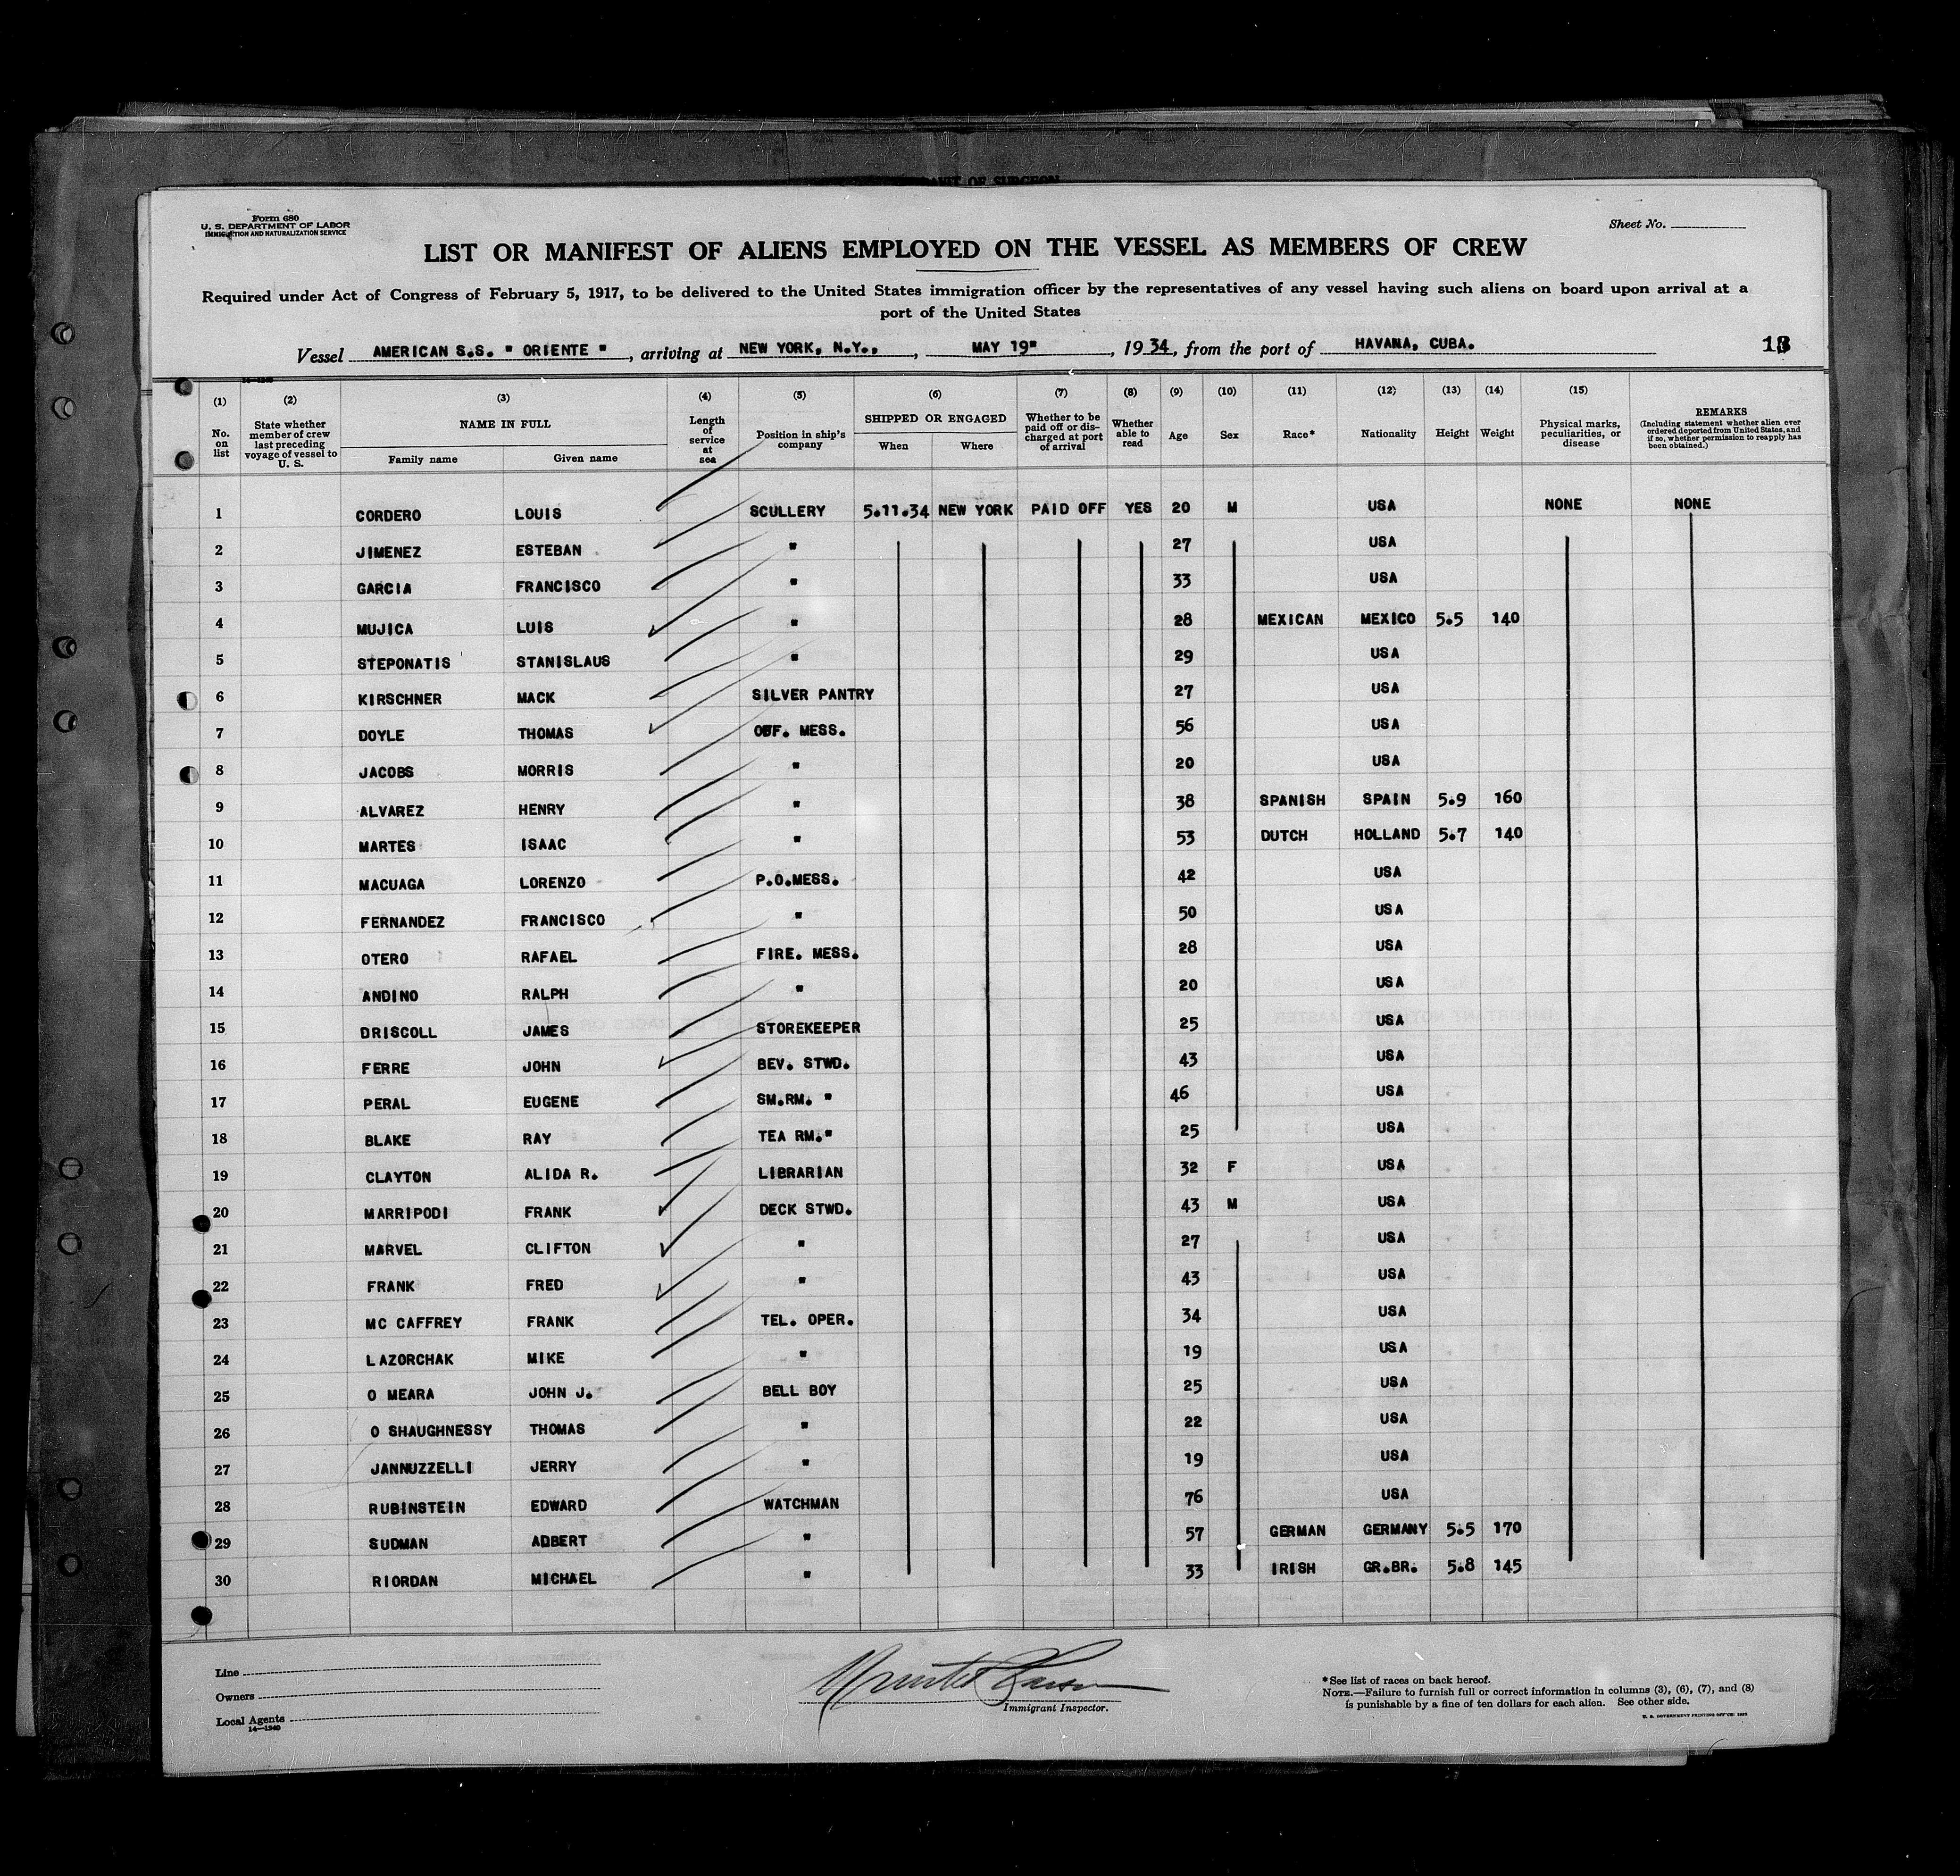 Form 680
U. S. DEPARTMENT OF LABOR
IMMIGRATION AND NATURALIZATION SERVICE
Sheet No.
LIST OR MANIFEST OF ALIENS EMPLOYED ON THE VESSEL AS MEMBERS OF CREW
Required under Act of Congress of February 5, 1917, to be delivered to the United States immigration officer by the representatives of any vessel having such aliens on board upon arrival at a
port of the United States
Vessel AMERICAN S.S. " ORIENTE " , arriving at NEW YORK, N.Y., , MAY 19" , 19 34, from the port of HAVANA, CUBA.
(1) (2) (3) (4) (5) (6) (7) (8) (9) (10) (11) (12) (13) (14) (15)
No. on list
State whether member of crew last preceding voyage of vessel to U. S.
NAME IN FULL
Family name Given name
Length of service at sea
Position in ship's company
SHIPPED OR ENGAGED
When Where
Whether to be paid off or discharged at port of arrival
Whether able to read
Age Sex Race* Nationality Height Weight
Physical marks, peculiarities, or disease
REMARKS
(Including statement whether alien ever ordered deported from United States, and if so, whether permission to reapply has been obtained.)
1 CORDERO LOUIS SCULLERY 5.11.34 NEW YORK PAID OFF YES 20 M USA NONE NONE
2 JIMENEZ ESTEBAN " 27 USA
3 GARCIA FRANCISCO " 33 USA
4 MUJICA LUIS " 28 MEXICAN MEXICO 5.5 140
5 STEPONATIS STANISLAUS " 29 USA
6 KIRSCHNER MACK SILVER PANTRY 27 USA
7 DOYLE THOMAS OFF. MESS. 56 USA
8 JACOBS MORRIS " 20 USA
9 ALVAREZ HENRY " 38 SPANISH SPAIN 5.9 160
10 MARTES ISAAC " 53 DUTCH HOLLAND 5.7 140
11 MACUAGA LORENZO P.O.MESS. 42 USA
12 FERNANDEZ FRANCISCO " 50 USA
13 OTERO RAFAEL FIRE. MESS. 28 USA
14 ANDINO RALPH " 20 USA
15 DRISCOLL JAMES STOREKEEPER 25 USA
16 FERRE JOHN BEV. STWD. 43 USA
17 PERAL EUGENE SM.RM. " 46 USA
18 BLAKE RAY TEA RM." 25 USA
19 CLAYTON ALIDA R. LIBRARIAN 32 F USA
20 MARRIPODI FRANK DECK STWD. 43 M USA
21 MARVEL CLIFTON " 27 USA
22 FRANK FRED " 43 USA
23 MC CAFFREY FRANK TEL. OPER. 34 USA
24 LAZORCHAK MIKE " 19 USA
25 O MEARA JOHN J. BELL BOY 25 USA
26 O SHAUGHNESSY THOMAS " 22 USA
27 JANNUZZELLI JERRY " 19 USA
28 RUBINSTEIN EDWARD WATCHMAN 76 USA
29 SUDMAN ADBERT " 57 GERMAN GERMANY 5.5 170
30 RIORDAN MICHAEL " 33 IRISH GR.BR. 5.8 145
Line
Owners
Local Agents
14—1240
Immigrant Inspector.
*See list of races on back hereof.
NOTE.—Failure to furnish full or correct information in columns (3), (6), (7), and (8)
is punishable by a fine of ten dollars for each alien. See other side.